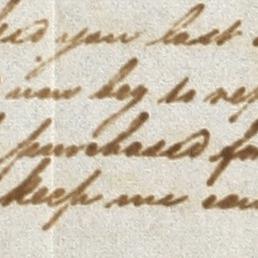 you last
now beg to rep
purchased for
keep me